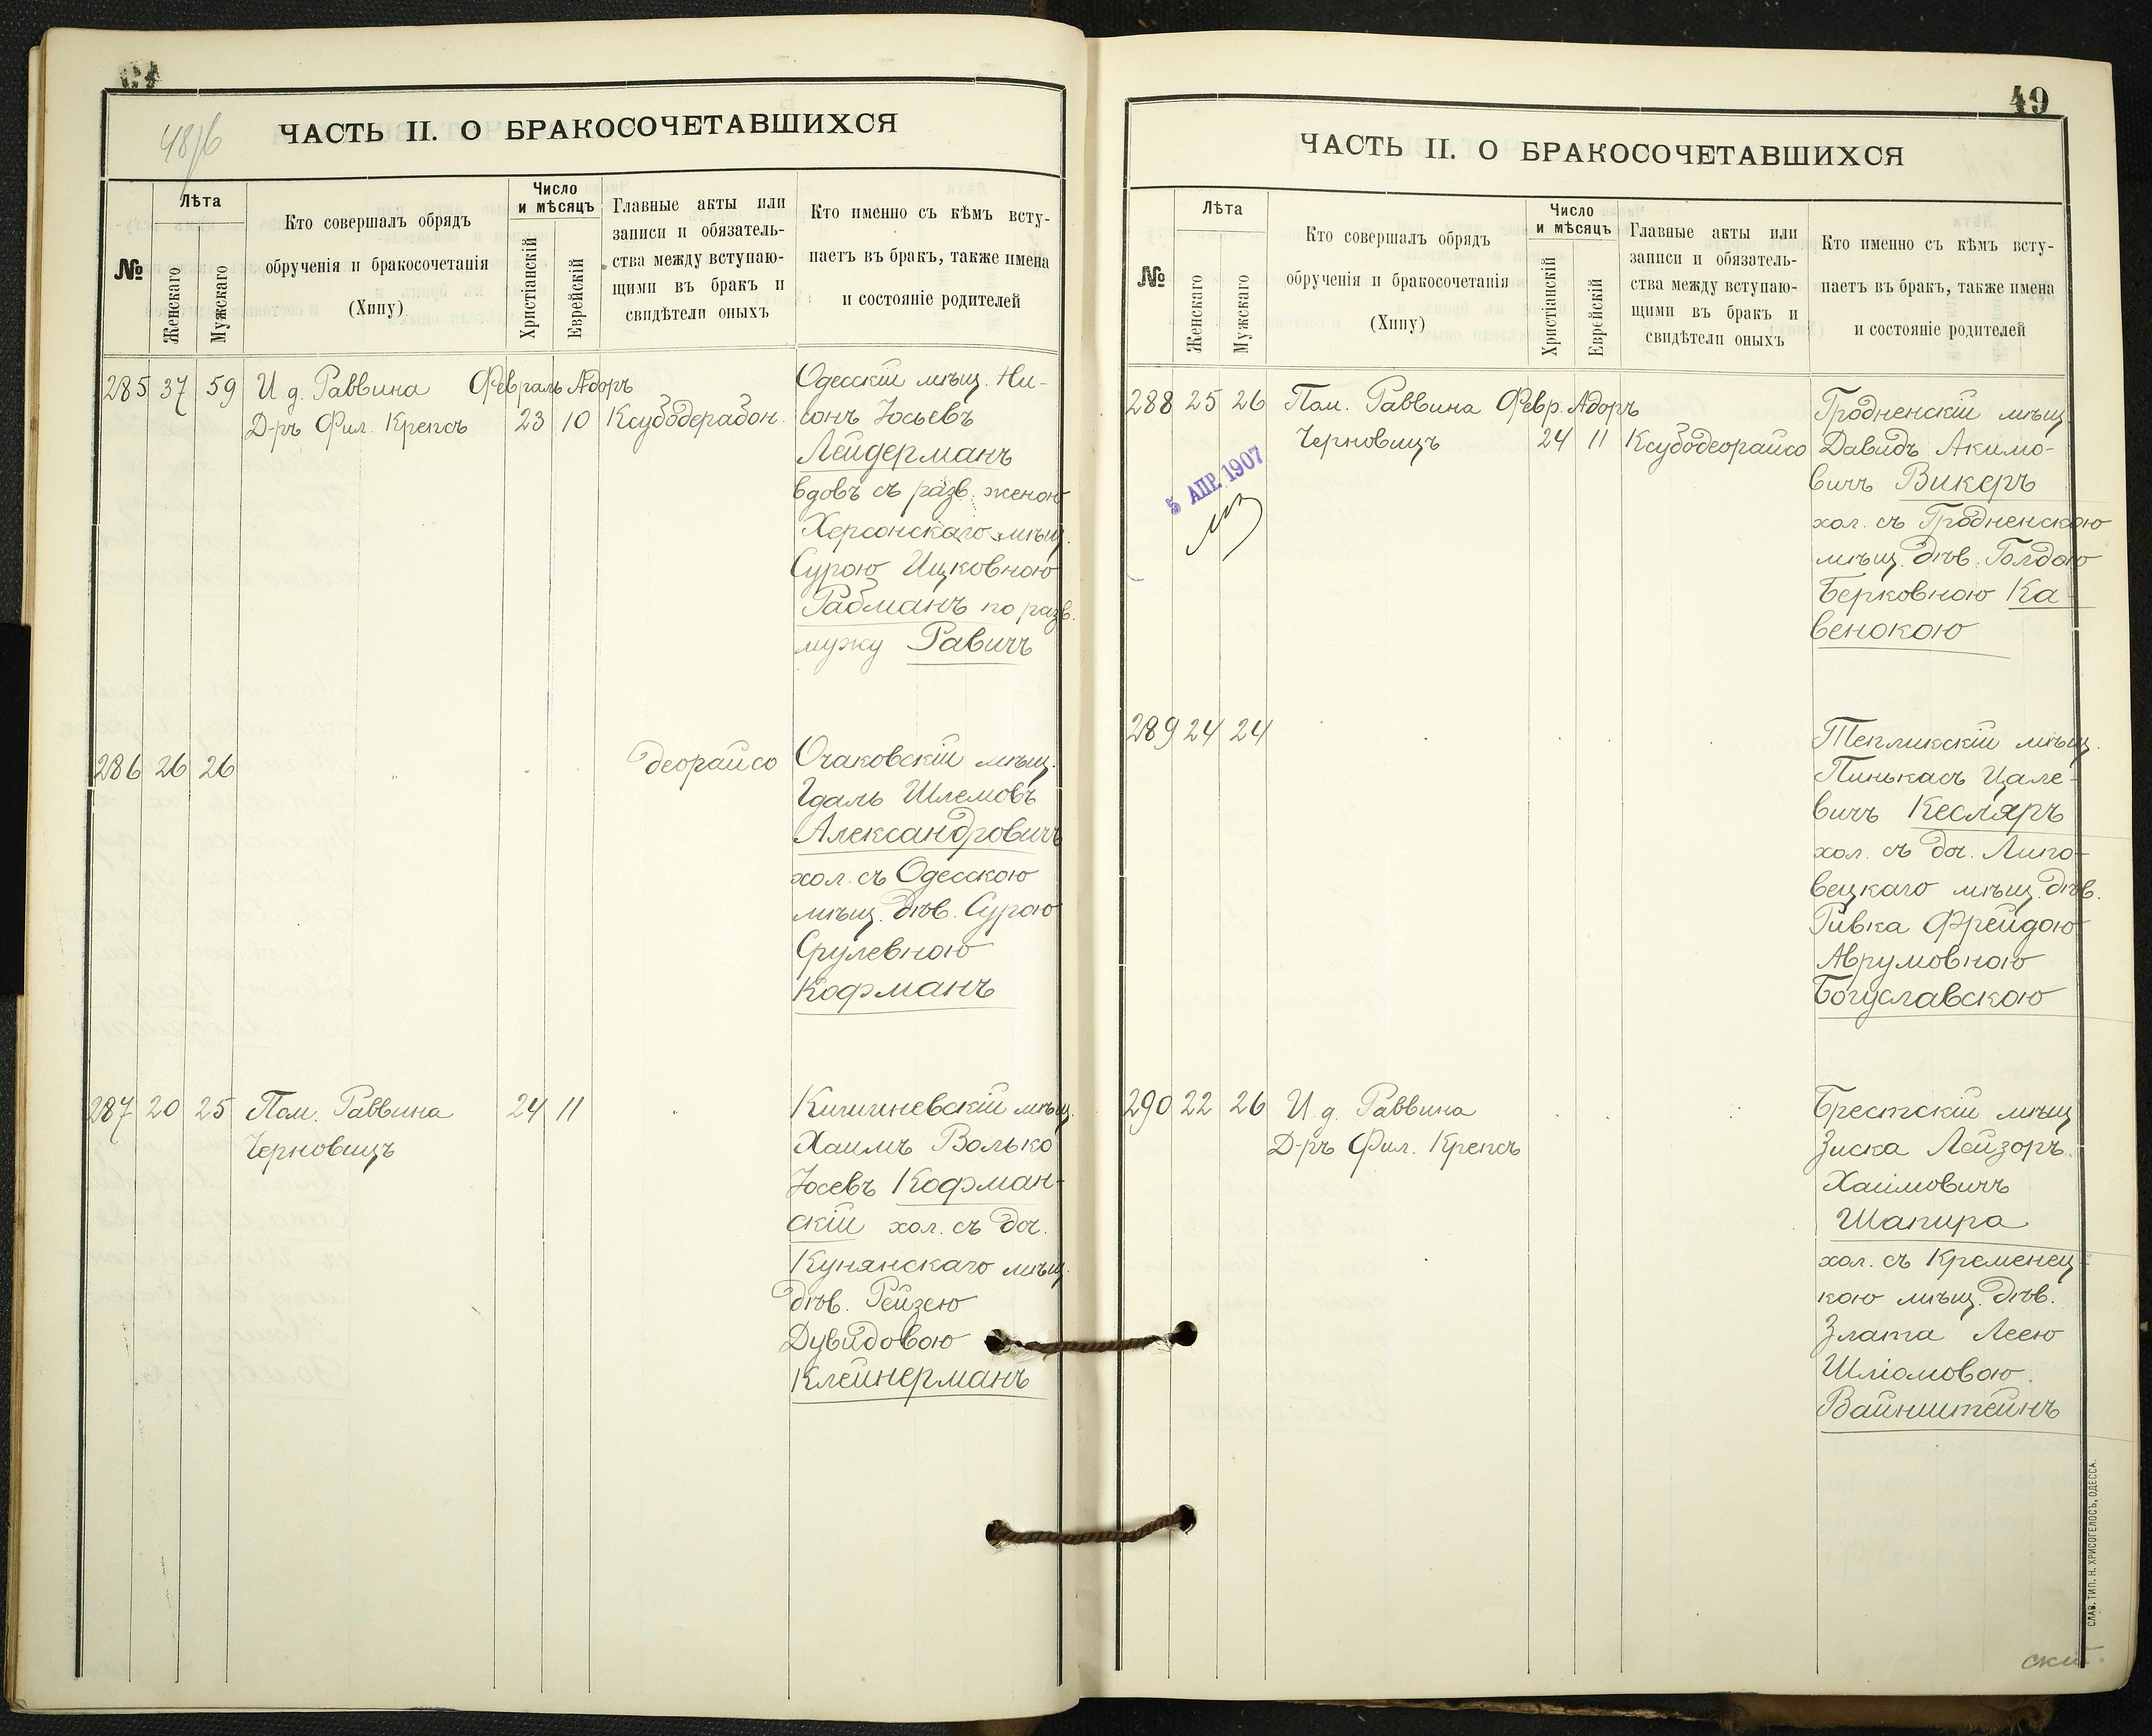 48/б
ЧАСТЬ II. О БРАКОСОЧЕТАВШИХСЯ
№
Лѣта
Женскаго
Мужскаго
Кто совершалъ обрядъ
обрученія и бракосочетанія
(Хипу)
Число
и мѣсяцъ
Христіанскій
Еврейскій
Главные акты или
записи и обязатель-
ства между вступаю-
щими въ бракъ и
свидѣтели оныхъ
Кто именно съ кѣмъ всту-
паетъ въ бракъ, также имена
и состояніе родителей
285 37 59 И д. Раввина Февраль Адоръ
Д-ръ Фил. Крепсъ 23 10 Ксубодерабон.
Одесскій мѣщ. Ни-
сонъ Іосьевъ
Лейдерманъ
вдовъ съ разв. женою
Херсонскаго мѣщ.
Сурою Ицковною
Рабманъ по разв.
мужу Равичъ
286 26 26 деорайсо
Очаковскій мѣщ.
Идаль Шлемовъ
Александровичъ
хол. съ Одесскою
мѣщ. дѣв. Сурою
Срулевною
Кофманъ
287 20 25 Пом. Раввина 24 11
Черновицъ
Кишиневскій мѣщ.
Хаимъ Волько
Іосевъ Кофман-
скій хол. съ доч.
Кунянскаго мѣщ.
дѣв. Рейзею
Дувидовою
Клейнерманъ
49
ЧАСТЬ II. О БРАКОСОЧЕТАВШИХСЯ
№
Лѣта
Женскаго
Мужскаго
Кто совершалъ обрядъ
обрученія и бракосочетанія
(Хипу)
Число
и мѣсяцъ
Христіанскій
Еврейскій
Главные акты или
записи и обязатель-
ства между вступаю-
щими въ бракъ и
свидѣтели оныхъ
Кто именно съ кѣмъ всту-
паетъ въ бракъ, также имена
и состояніе родителей
288 25 26 Пом. Раввина Февр. Адоръ
Черновицъ 24 11 Ксубодеорайсо
5 АПР. 1907
Гродненскій мѣщ
Давидъ Акимо-
вичъ Викеръ
хол. съ Гродненскою
мѣщ. дѣв. Голдою
Берковною Ка-
венокою
289 24 24
Тепликскій мѣщ.
Пинькасъ Цале-
вичъ Кесляръ
хол. съ доч. Липо-
вецкаго мѣщ. дѣв.
Ривка Фрейдою
Аврумовною
Богуславскою
290 22 26 И. д. Раввина
Д-ръ Фил. Крепсъ
Брестскій мѣщ
Зиска Лейзоръ
Хаимовичъ
Шапира
хол. съ Кременец-
кою мѣщ. дѣв.
Злата Леею
Шліомовою
Вайнштейнъ
СЛАВ. ТИП. Н. ХРИСОГЕЛОСЪ, ОДЕССА.